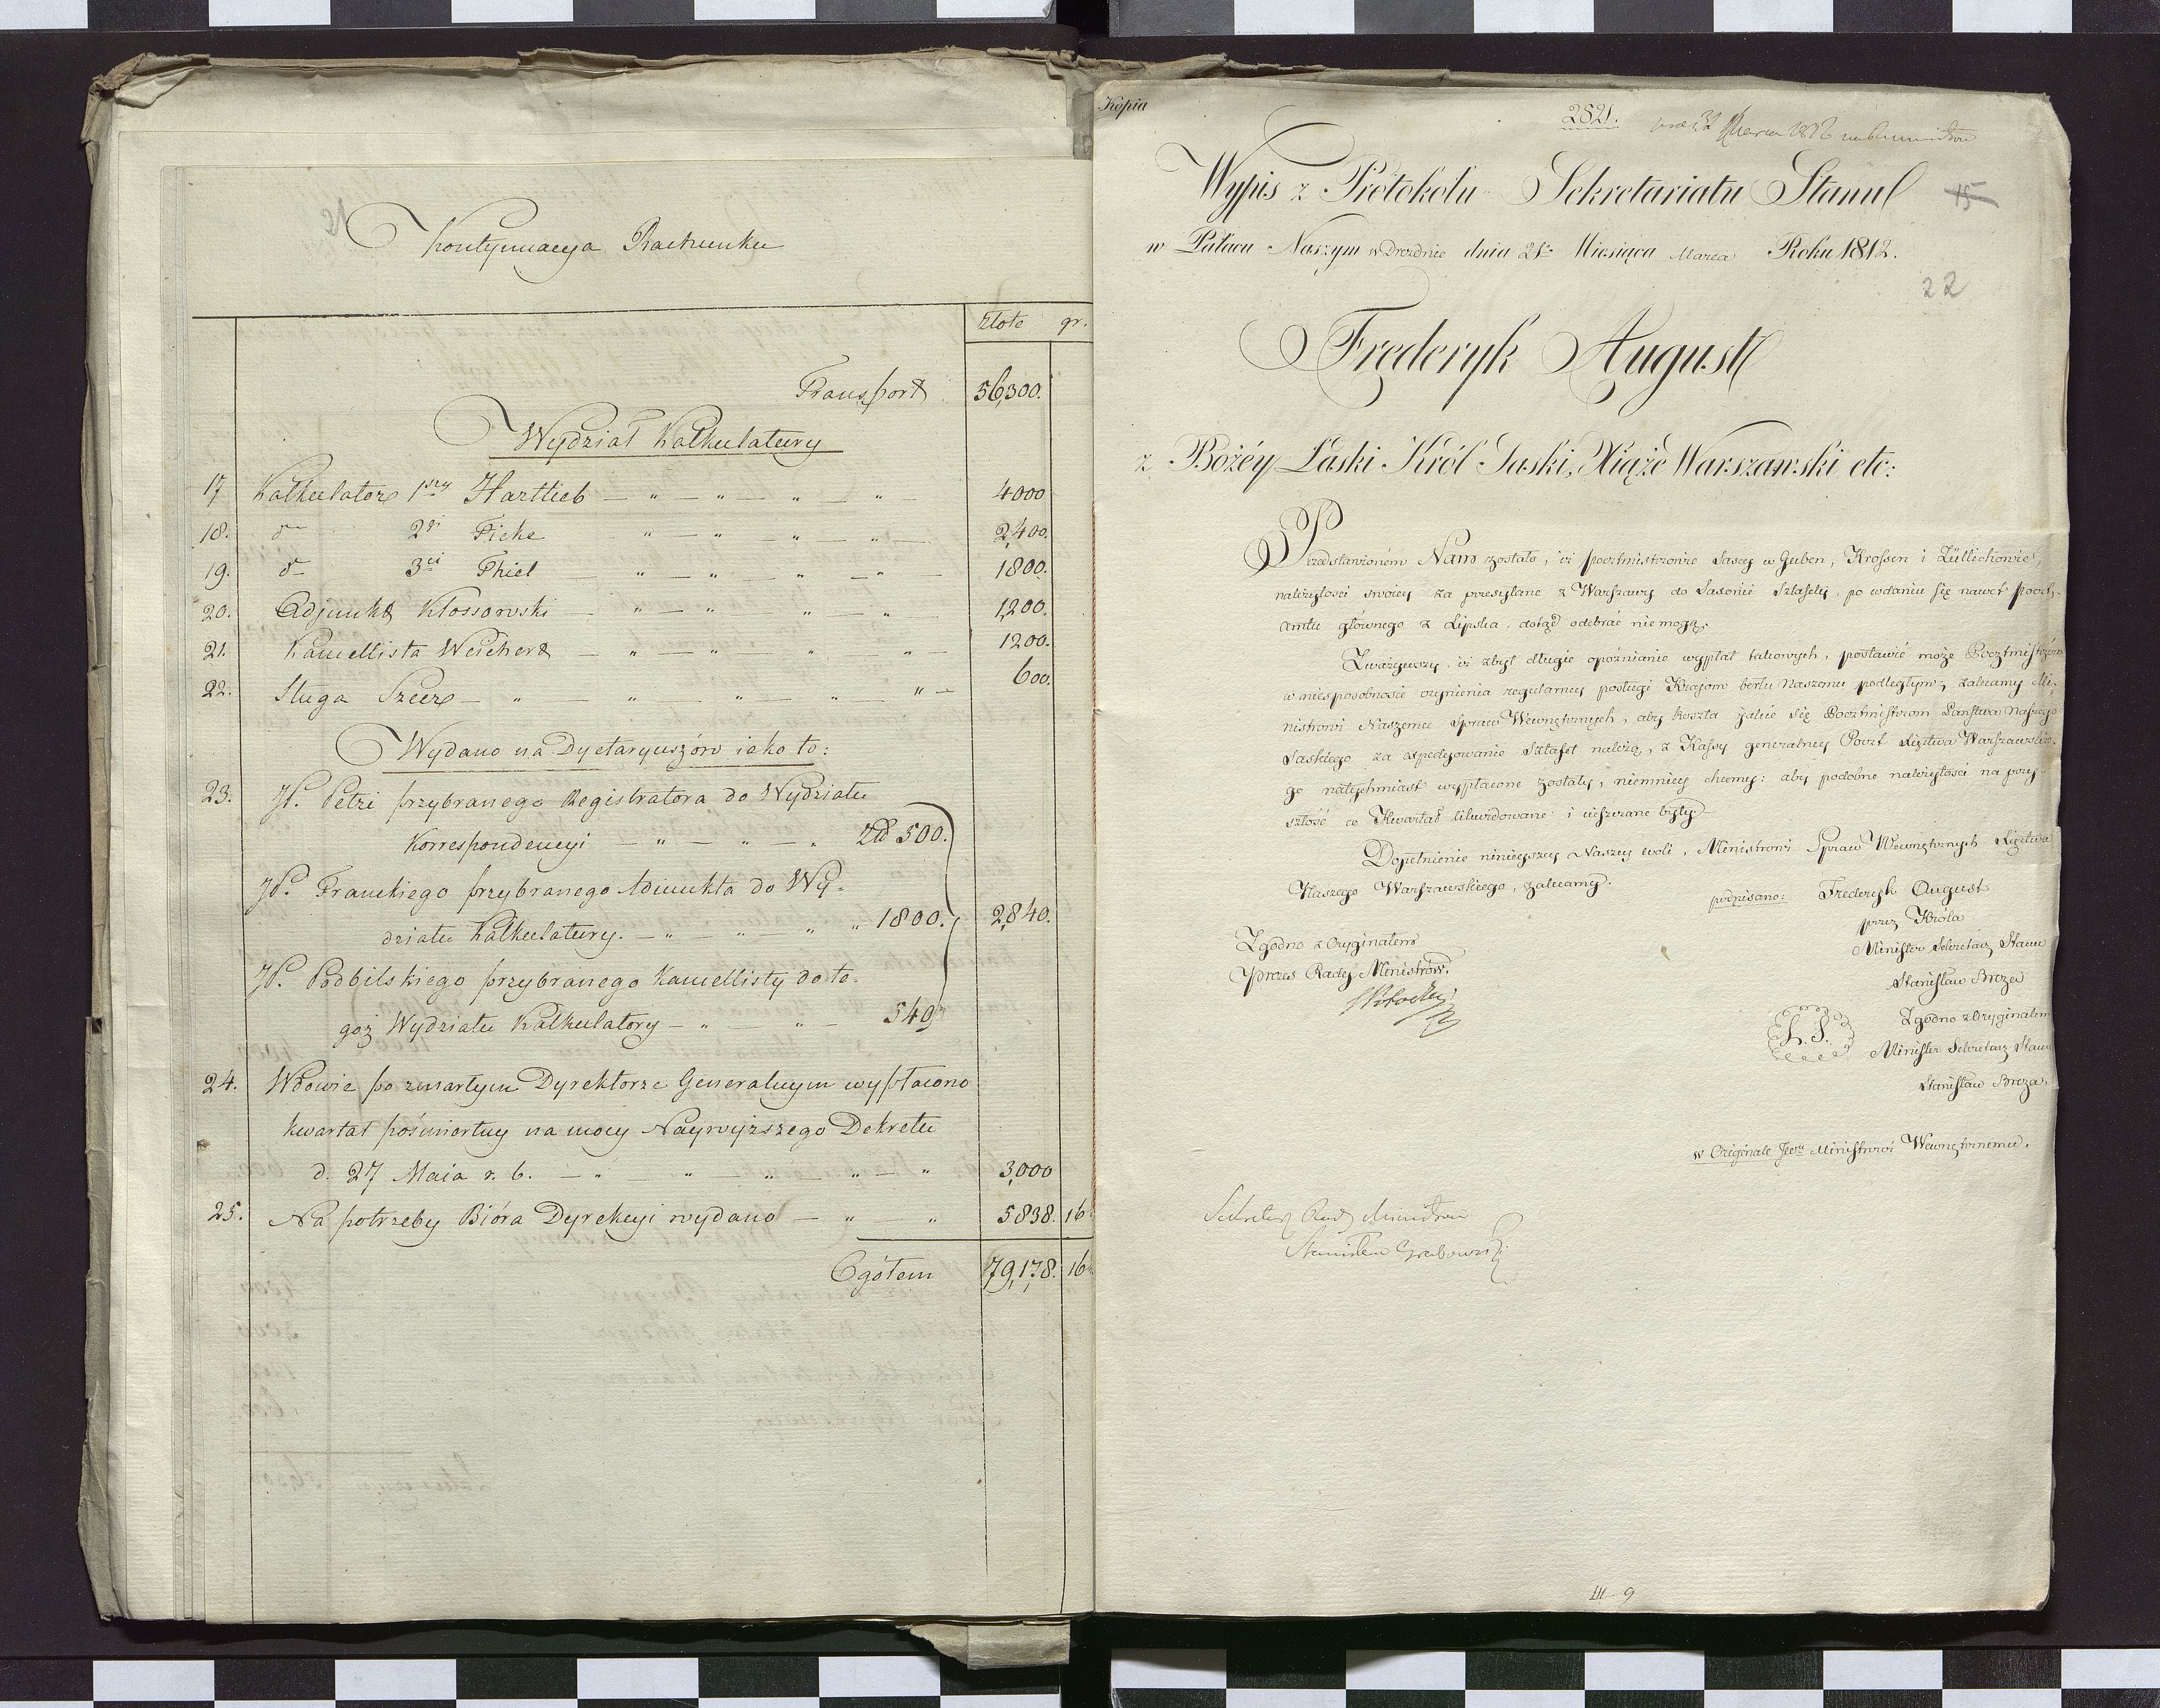 Kontynuacya Rachunku
złote gr.
Transport 56,300.
Wydział Kalkulatury
17 Kalkulator 1szy Hartlieb — „ — „ — „ — „ — 4000
18. dto 2gi Ficke „ — „ — „ — „ — 2,400.
19. dto 3ci Thiel — „ — „ — „ — „ — 1800.
20. Adjunkt Kłossowski — „ — „ „ — „ 1,200.
21. Kancellista Weichert — „ — „ — „ „ — 1200.
22. Sługa Szeer — „ — „ — „ — „ „ — 600.
Wydano na Dyetaryuszów iako to:
23. JP. Petri przybranego Registratora do Wydziału
Korrespondencyi — „ — „ — „ Zł 500.
JP. Franckiego przybranego Adiunkta do Wy-
działu Kalkulatury. — „ — „ — „ „ 1800. 2,840.
JP. Podbilskiego przybranego Kancellisty do te-
goż Wydziału Kalkulatory — „ — „ — 540
24. Wdowie po zmarłym Dyrektorze Generalnym wypłacono
kwartał pośmiertny na mocy Naywyższego Dekretu
d. 27 Maia r. b. — „ „ — „ — „ — „ 3,000
25. Na potrzeby Bióra Dyrekcyi wydano — „ — „ 5838. 16
Ogółem 79,178. 16
Kopia
2821.
Marca 1812
Wypis z Protokołu Sekretariatu Stanu
15
w Pałacu Naszym w Dreznie dnia 21. Miesiąca Marca Roku 1812.
22
Frederyk August
z Bożéy Łaski Król Saski, Xiąże Warszawski etc:
Przedstawioném Nam zostało, iż pocztmistrzowie Sascy w Guben, Krossen i Züllichowie,
należytości swoiey za przesyłane z Warszawy do Saxonii Sztafety, po udaniu się nawet poczt-
amtu głównego z Lipska, dotąd odebrać nie mogą.
Zważywszy, iż zbyt długie opóźnianie wypłat takowych, postawić może Pocztmistrzów
w niesposobności czynienia regularney posługi Krajom berłu Naszemu podległym; zalecamy Mi-
nistrowi Naszemu Spraw Wewnętrznych, aby koszta jakie się Pocztmistrzom Państwa Naszego
Saskiego za expedyowanie Sztafet należą, z Kassy generalney Poczt Xięztwa Warszawskie-
go natychmiast wypłacone zostały, niemniey chcemy: aby podobne należytości na przy-
szłość co Kwartał likwidowane i uiszczane były.
Dopełnienie ninieyszey Naszey woli, Ministrowi Spraw Wewnętrznych Xięztwa
Naszego Warszawskiego, zalecamy.
podpisano: Frederyk August
przez Króla
Minister Sekretarz Stanu
Stanisław Breza
Zgodno z Oryginałem
Prezes Rady Ministrów.
SPotocki
L. S.
Zgodno z Oryginałem
Minister Sekretarz Stanu
Stanisław Breza.
w Originale Jwu Ministrowi Wewnętrznemu.
Sekretarz Rady Ministrów
Stanisław Grabowski
III 9